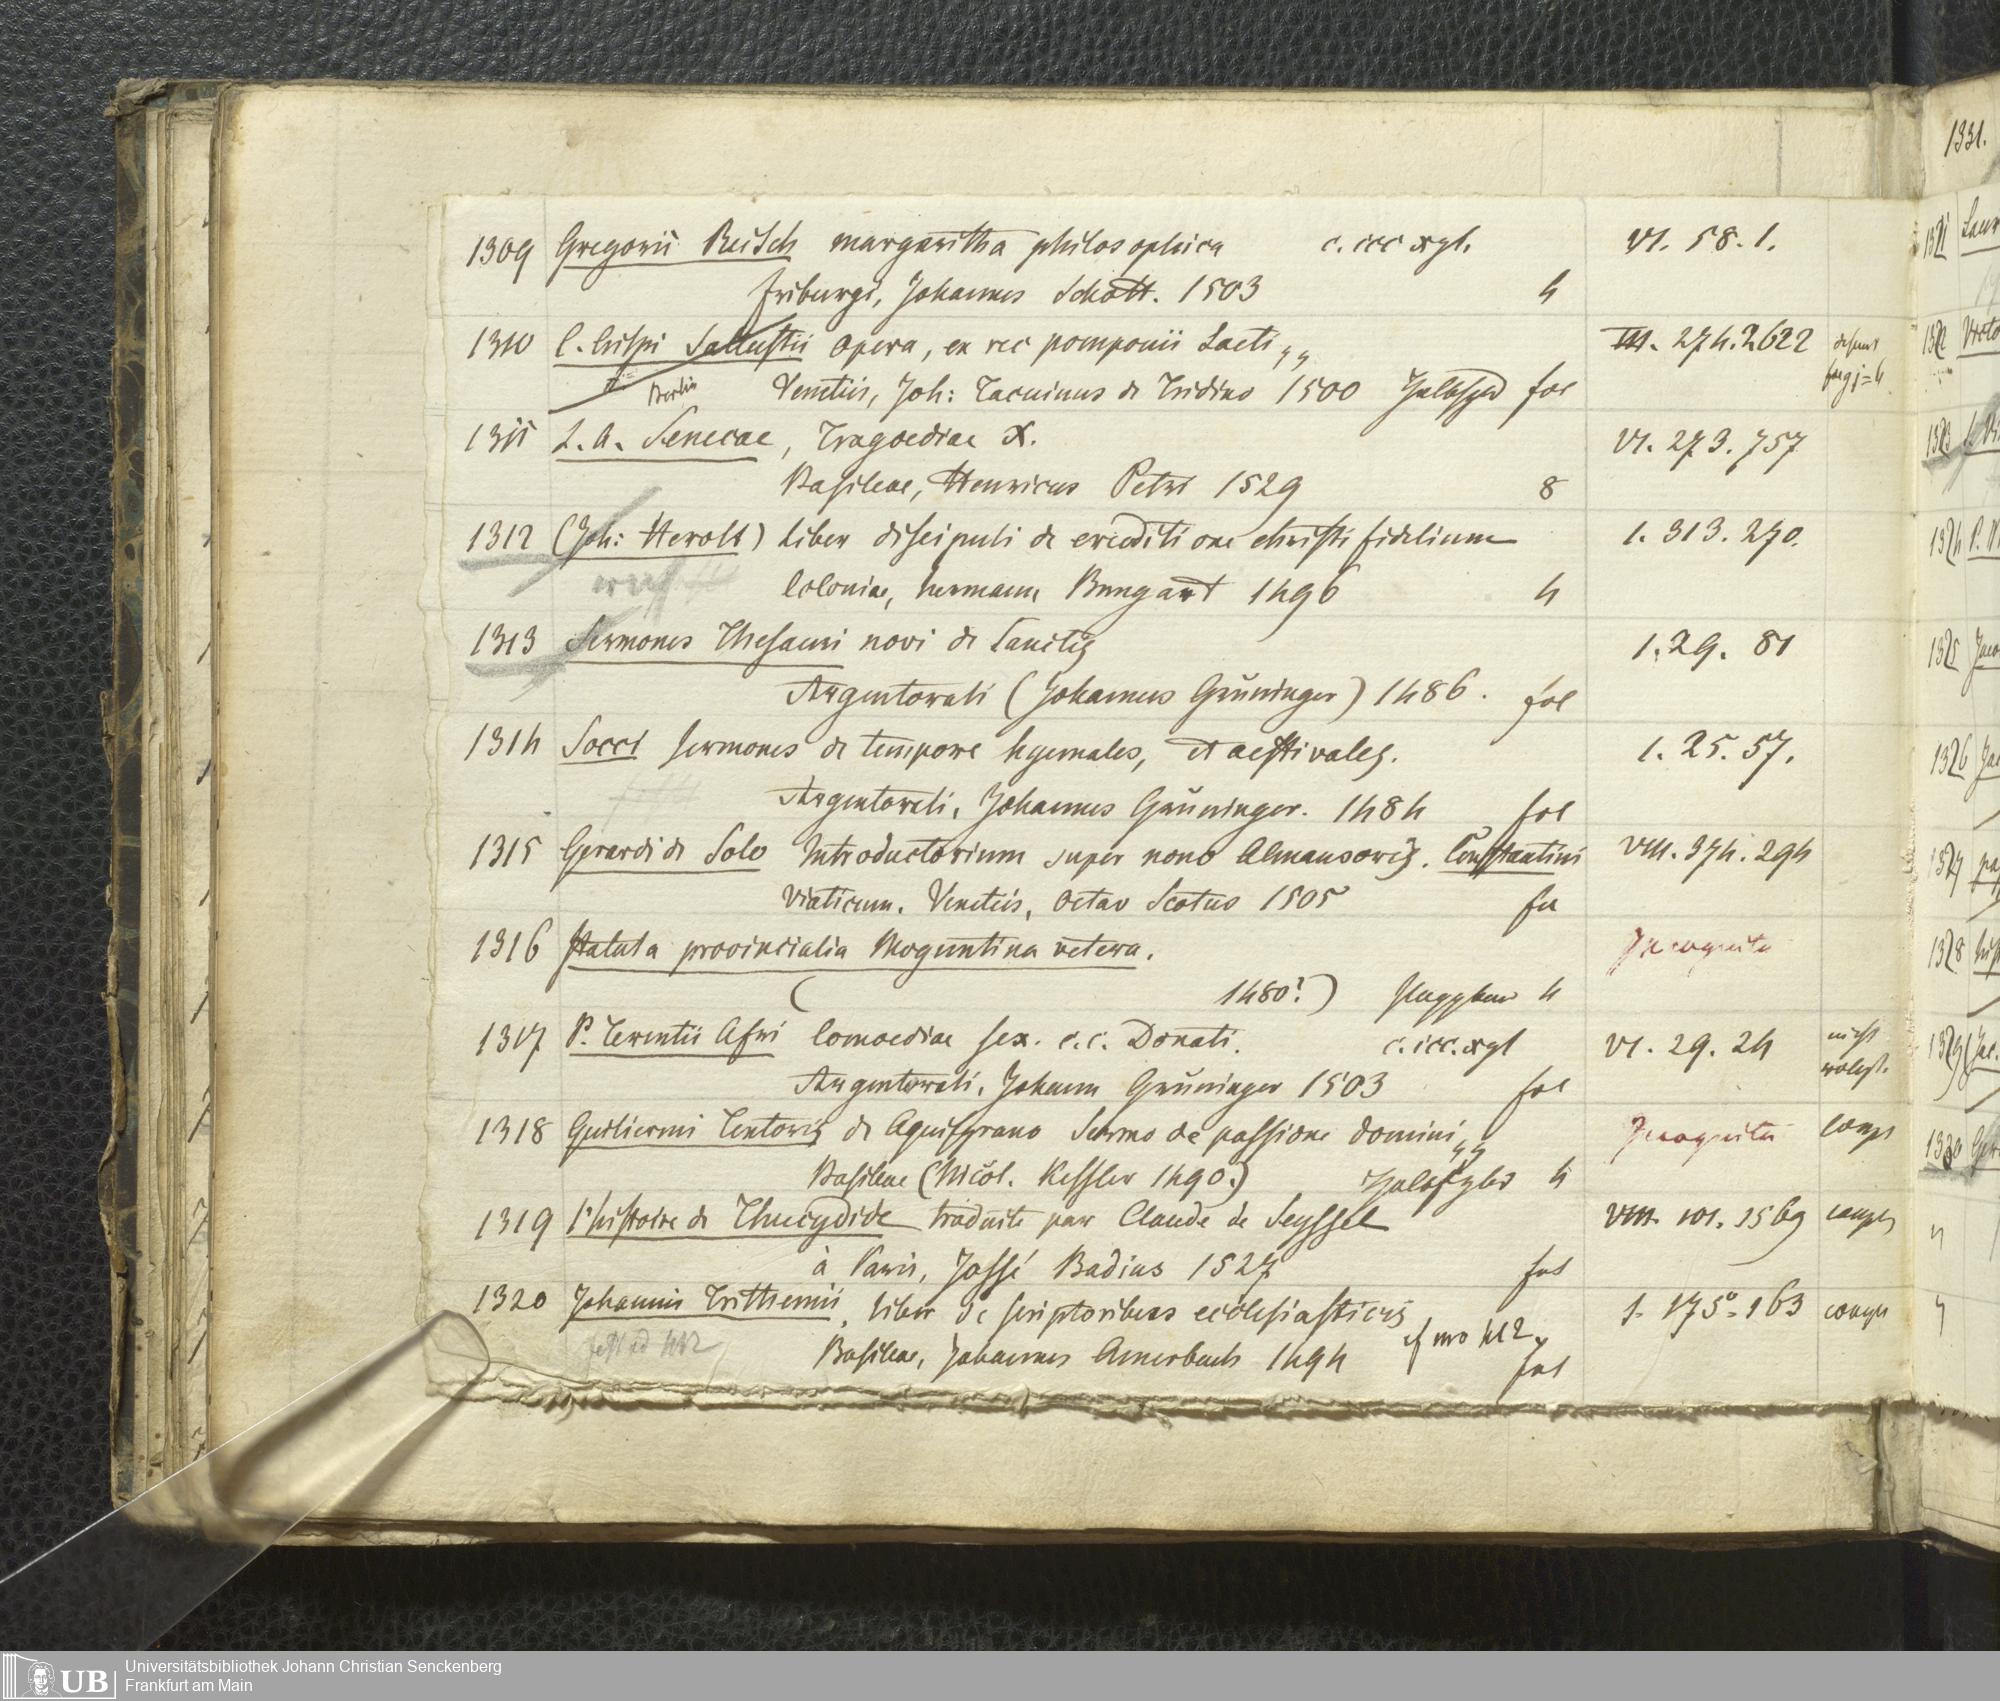 1309 Gregorii Reisch margaritha philosophica c. icc xyl. VI. 58. 1.
friburgi, Johannes Schott. 1503 4
1310 C. Crispi Sallustii opera, ex rec pomponii Laeti „ III. 274. 2622
Berlin Venetiis, Joh: Tacuinus de Tridino 1500 fol
1311 L. A. Senecae, Tragoediae X. VI. 273. 757
Basileae, Henricus Petri 1529 8
1312 (Joh: Herolt) Liber discipuli de eruditione christi fidelium 1. 313. 270.
Coloniae, hermann Bungart 1496 4
1313 Sermones Thesauri novi de Sanctis 1. 29. 81
Argentorati (Johannes Grüninger) 1486. fol
1314 Socci sermones de tempore hyemales, et aestivales. 1. 25. 57.
Argentorati, Johannes Grüninger. 1484 fol
1315 Gerardi de Solo Introductorium super nono Almansoris. Constantini VIII. 374. 294
Viaticum. Venetiis, octav Scotus 1505 fol
1316 Statuta provincialia Moguntina vetera. Incognita
( 1480?) 4
1317 P. Terentii Afri Comoediae sex. c. c. Donati. c. icc. xyl VI. 29. 24 nicht
Argentorati, Johann Grüninger 1503 fol
1318 Guiliermi Textoris de Aquisgrano Sermo de passione domini „ Incognita
Basileae (Nicol. Kessler 1490.) 4
1319 l'histoire de Thucydide traduite par Claude de Seyssel VIII. 101. 1569
à Paris, Jossé Badius 1527 fol
1320 Johannis Trithemii, liber de scriptoribus ecclesiasticis 1. 175. 163
Basileae, Johannes Amerbach 1494 cf nro 412 fol
1331.
1321
1322
1323
1324
1325
1326
1327
1328
1329
1330
UB Universitätsbibliothek Johann Christian Senckenberg
Frankfurt am Main